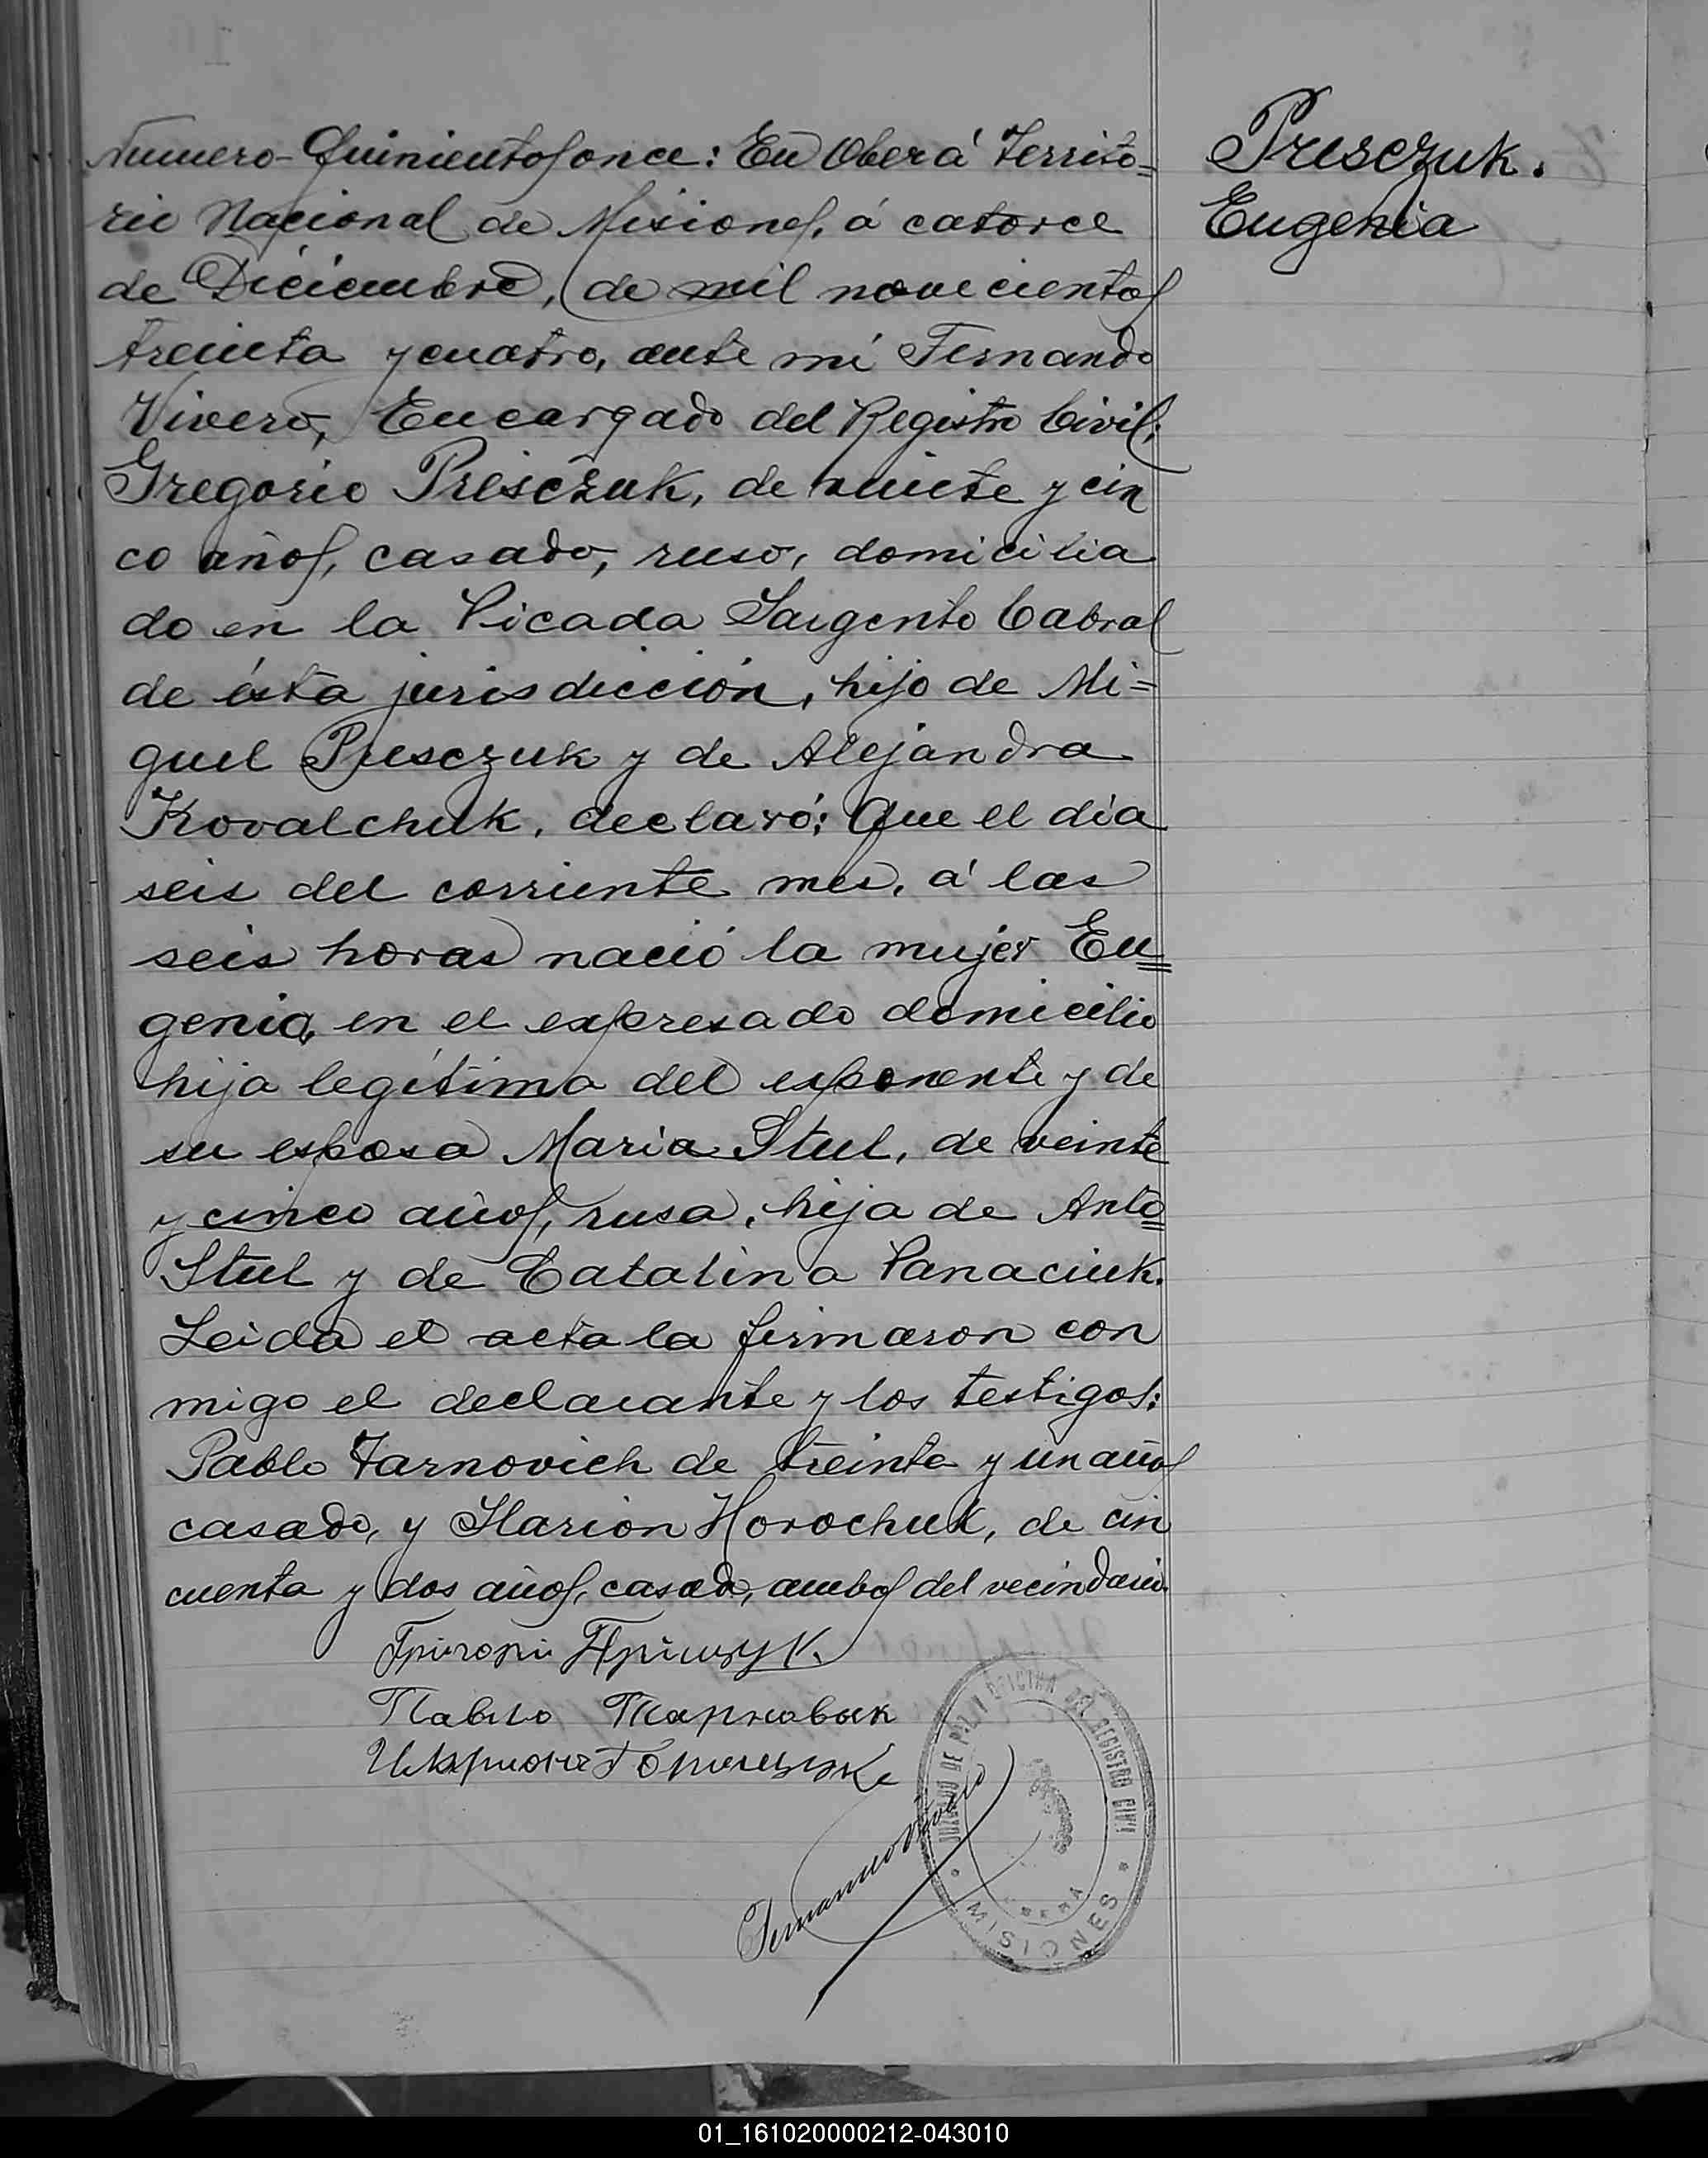 Numero Quinientos once: En Oberá Territo=
rio Nacional de Misiones, á catorce
de Diciembre, de mil novecientos
treinta y cuatro, ante mí Fernando
Vivero, Encargado del Registro Civil;
Gregorio Presczuk, de veinte y cin
co años, casado, ruso, domicilia
do en la Picada Sargento Cabral
de ésta jurisdicción, hijo de Mi=
guel Presczuk y de Alejandra
Kovalchuk, declaró; Que el día
seis del corriente mes, á las
seis horas nació la mujer Eu=
genia, en el expresado domicilio
hija legítima del exponente y de
su esposa Maria Stul, de veinte
y cinco años, rusa, hija de Anto=
Stul y de Catalina Panaciuk.
Leida el acta la firmaron con
migo el declarante y los testigos:
Pablo Tarnovich de treinta y un años
casado, y Ilarion Horochuk, de cin
cuenta y dos años, casado, ambos del vecindario.
Presczuk.
Eugenia
Григорій Пріщук.
Павло Тарновык
JUZGADO DE PAZ Y OFICINA DEL REGISTRO CIVIL
OBERA
MISIONES
Fernando Vivero
01_161020000212-043010